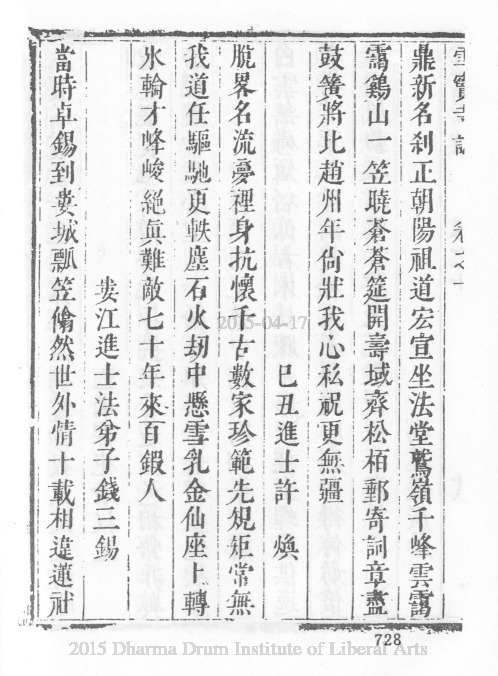 雪竇寺誌　卷之十
鼎新名刹正朝陽祖道宏宣坐法堂鷲嶺千峰雲靄
靄鷄山一笠曉蒼蒼筵開壽域齊松栢郵寄詞章盡
鼓簧將比趙州年尙壯我心私祝更無疆
巳丑進士許　煥
脫畧名流夢裡身抗懷千古數家珍範先規矩常無
我道任驅馳更軼塵石火刼中懸雪乳金仙座上轉
氷輪才峰峻絕眞難敵七十年來百鍜人
婁江進士法弟子錢三錫
當時卓錫到婁城瓢笠翛然世外情十載相違蓮社
2015-04-17
728
2015 Dharma Drum Institute of Liberal Arts